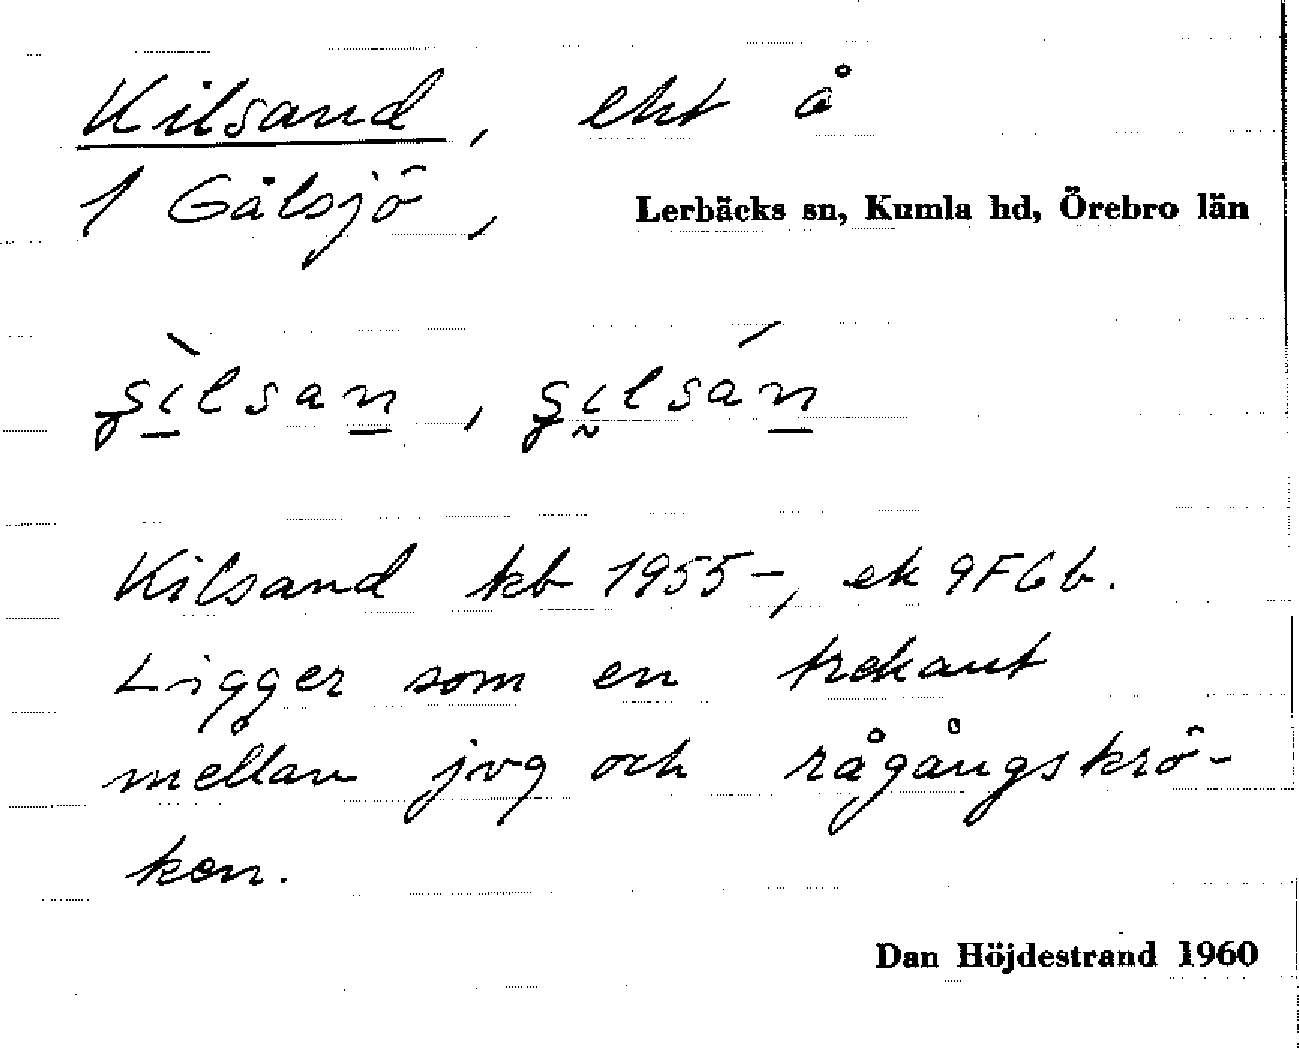 Kilsand, eht å
1 Gålsjö,
Lerbäcks sn, Kumla hd, Örebro län
Kilsand kb 1955–, ek 9F6b.
Ligger som en trekant
mellan jvg och rågångskrö-
ken.
Dan Höjdestrand 1960